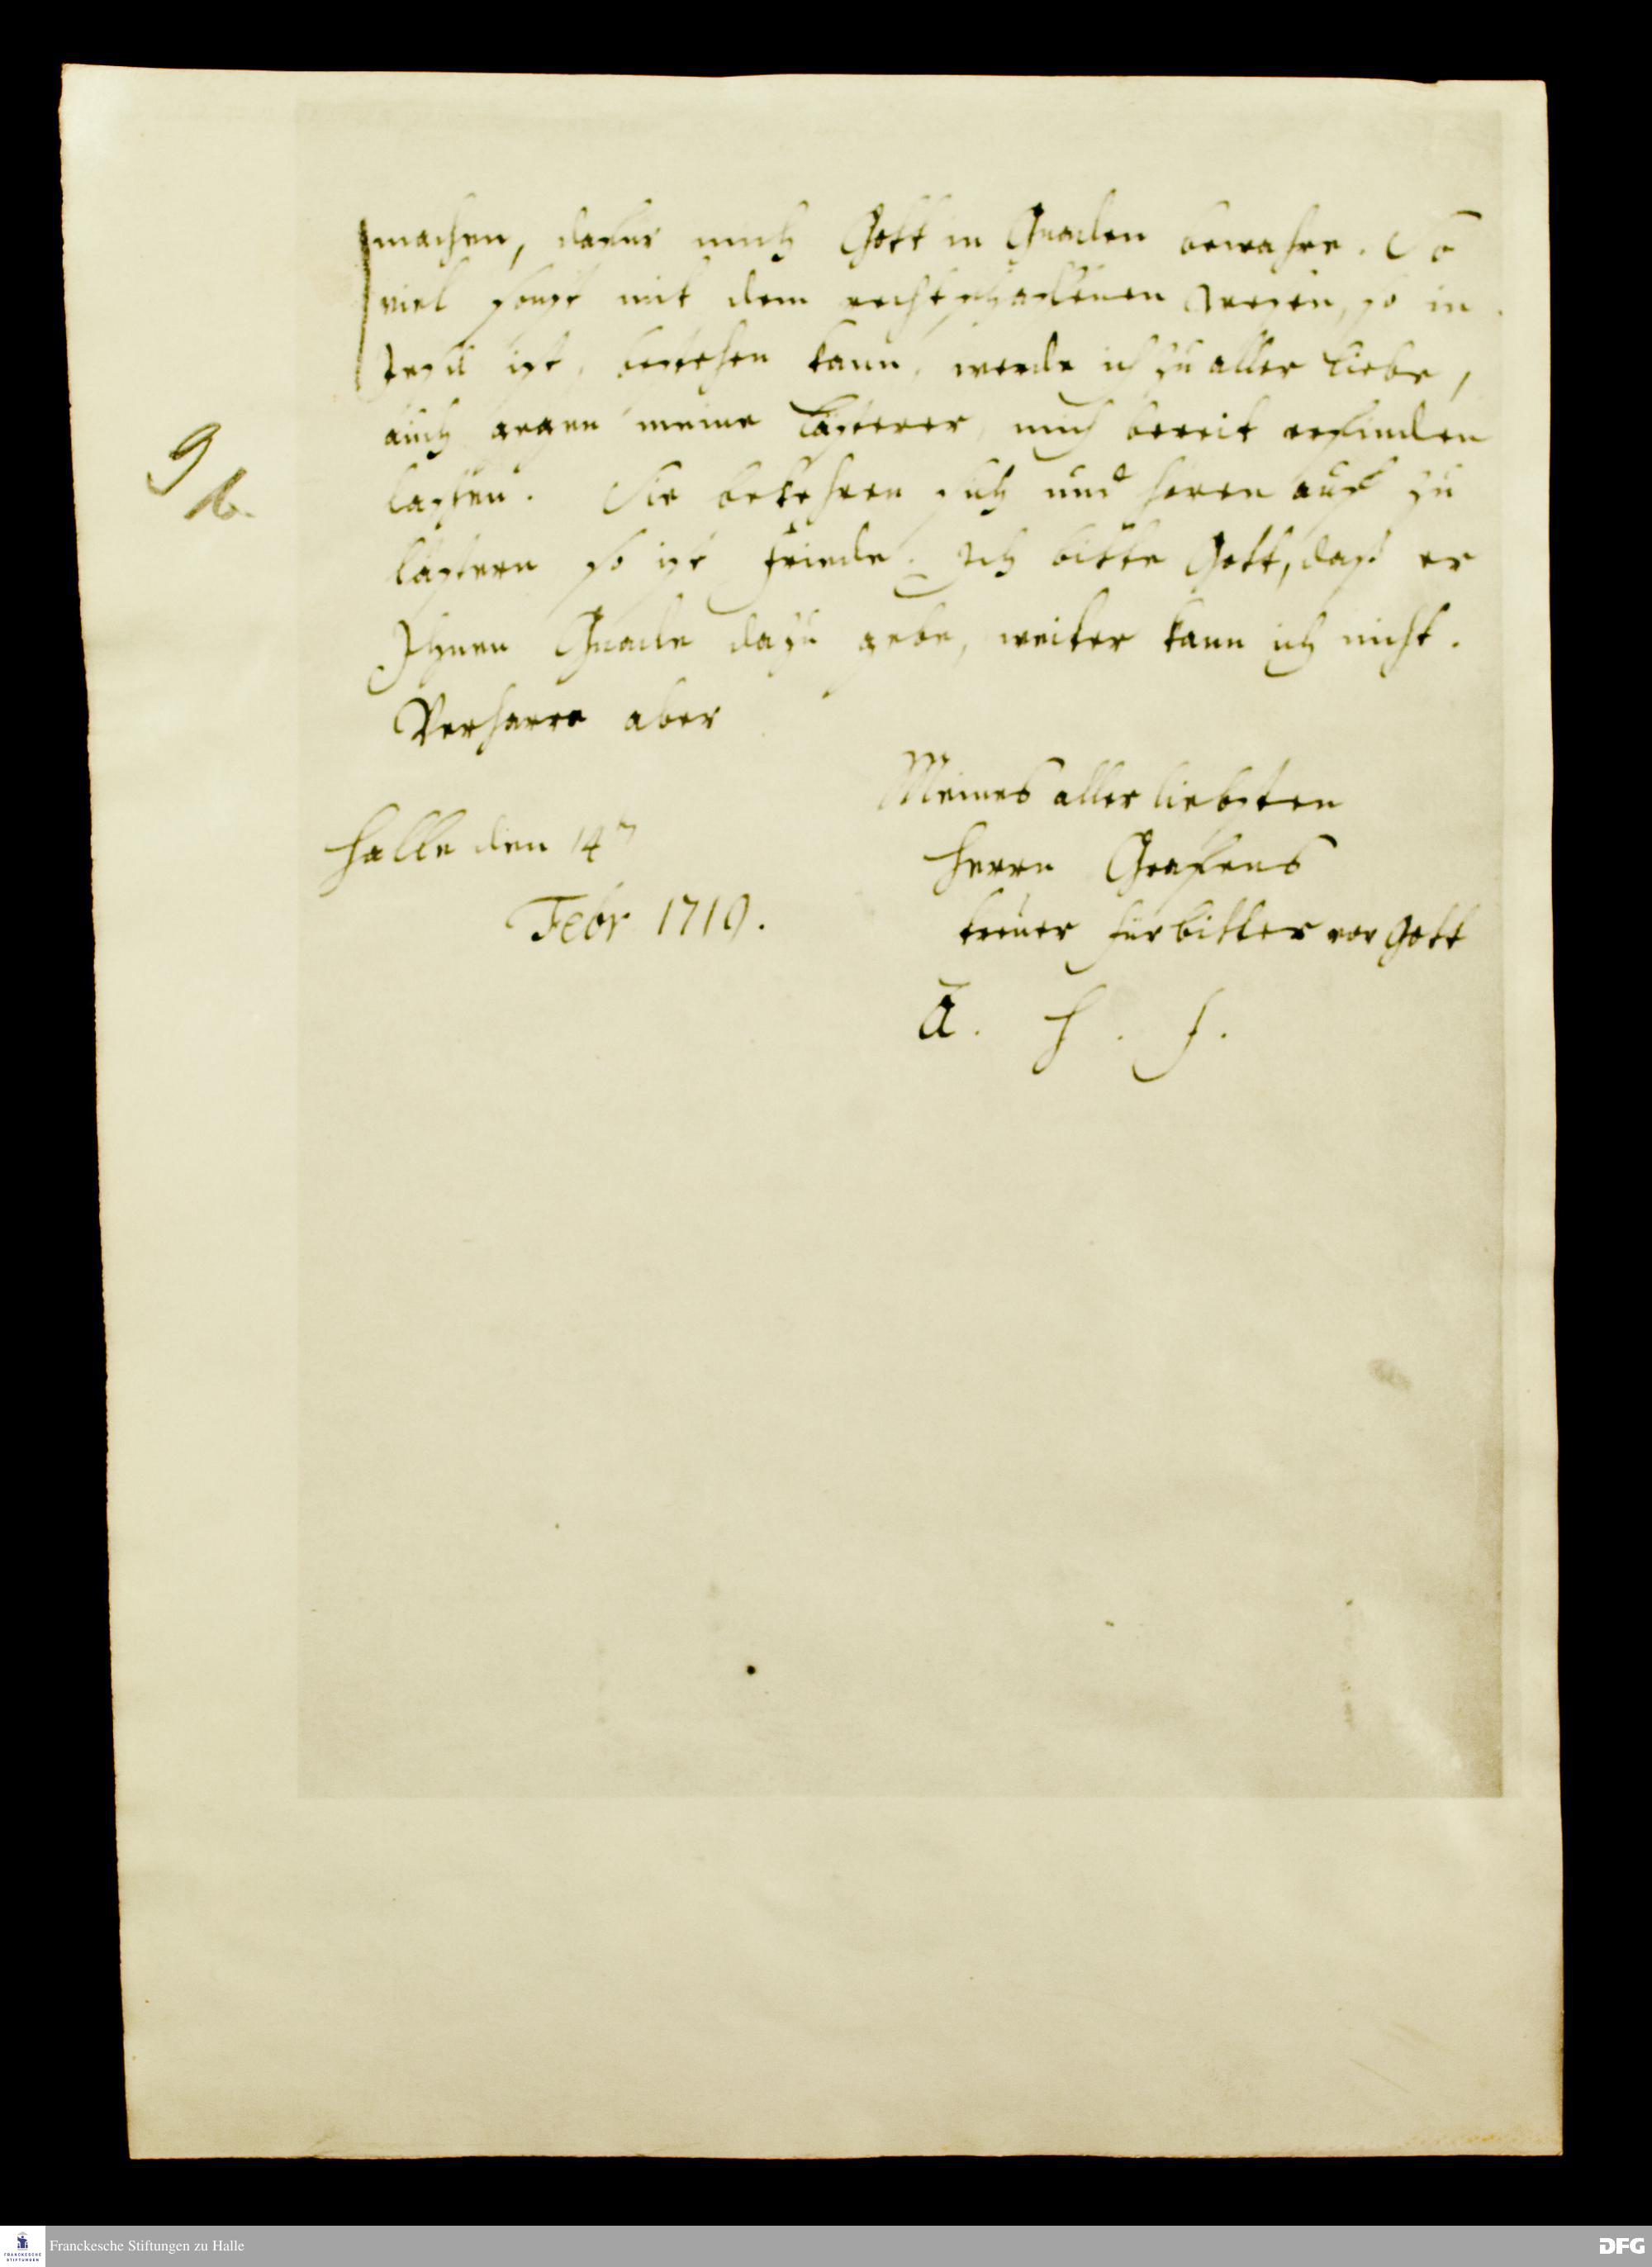 machen, dafür mich Gott in Gnaden bewahre. So
viel sonst mit dem rechtschaffenen Wesen, so in
Jesu ist, bestehen kann, werde ich zu aller Liebe,
auch gegen meine Lästerer, mich bereit erfinden
laßen. Sie bekehren sich und hören auf zu
lästern so ist Friede. Ich bitte Gott, daß er
Ihnen Gnade dazu gebe, weiter kann ich nicht.
Verharre aber
Meines allerliebsten
Herrn Grafens
treuer Fürbitter vor Gott
A. H. F.
Halle den 14
Febr 1719.
9
b.
Franckesche Stiftungen zu Halle
FRANCKESCHE STIFTUNGEN
DFG